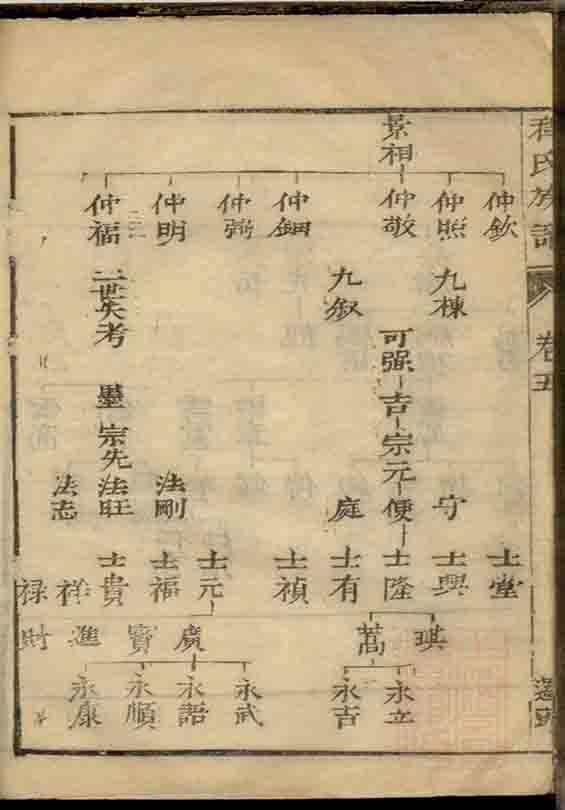 程氏族譜
卷五
景相
仲欽
仲照
仲敬
仲鈿
仲弼
仲明
仲福
九棟
九叙
二世失考
可强
吉
宗元
便
守
庭
墨
宗先
法旺
法剛
法志
士堂
士興
士隆
士有
士禎
士元
士福
士貴
祥
禄
琪
萬
廣
寶
進
財
永立
永吉
永武
永語
永順
永康